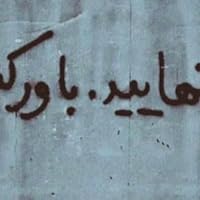 نهایید. باور ک